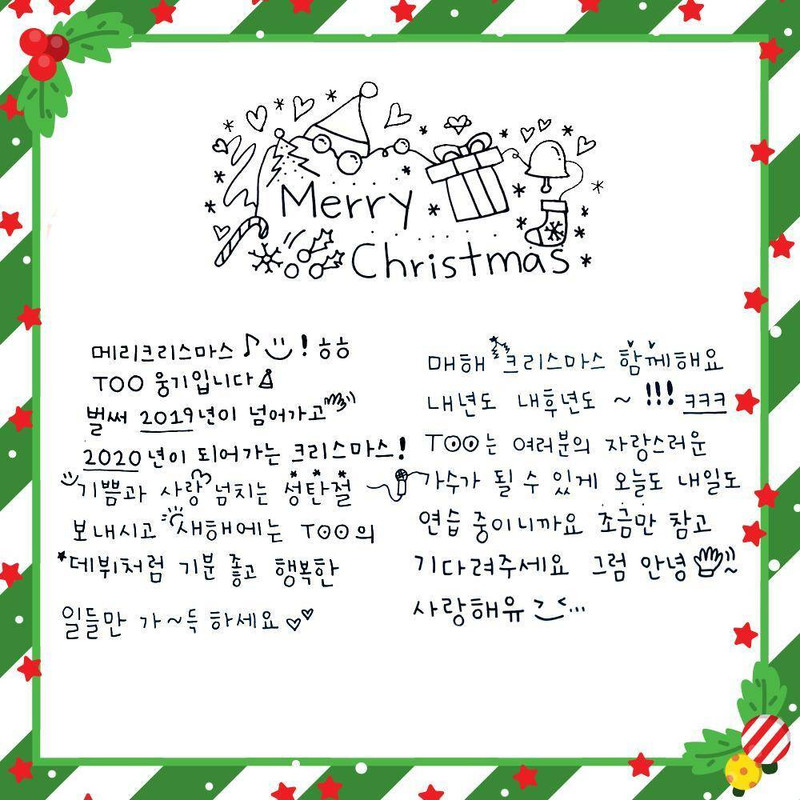 Merry
Christmas
메리크리스마스♪!ㅎㅎ
TOO 웅기입니다
벌써 2019년이 넘어가고
2020년이 되어가는 크리스마스!
기쁨과 사랑 넘치는 성탄절
보내시고 새해에는 TOO의
데뷔처럼 기분 좋고 행복한
일들만 가~득 하세요♡♡
매해 크리스마스 함께해요
내년도 내후년도 ~ !!! ㅋㅋㅋ
TOO는 여러분의 자랑스러운
가수가 될 수 있게 오늘도 내일도
연습 중이니까요 조금만 참고
기다려주세요 그럼 안녕~
사랑해유...